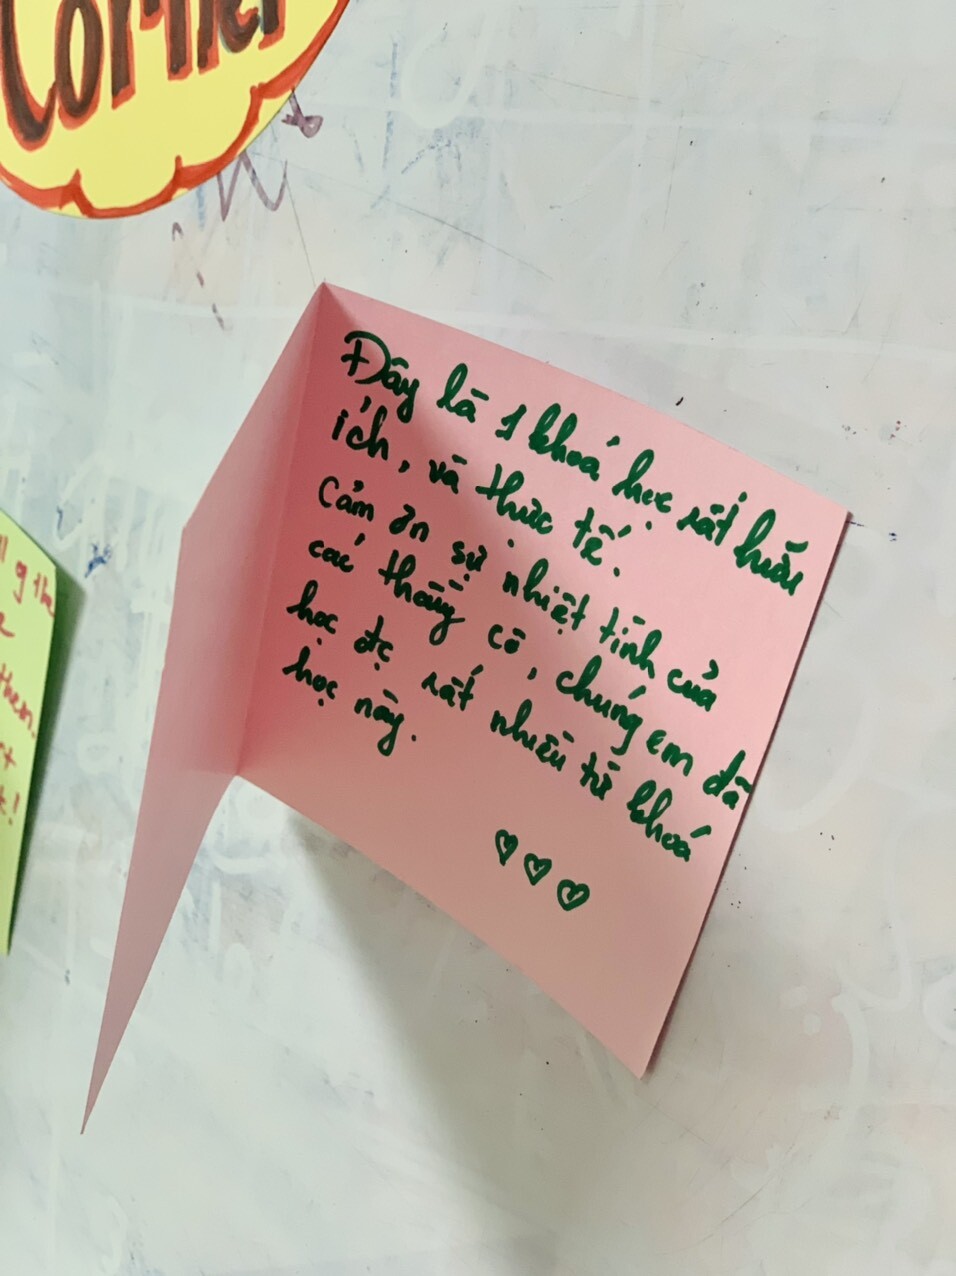 Corner
Đây là 1 khoá học rất hữu
ích, và thực tế.
Cảm ơn sự nhiệt tình của
các thầy cô, chúng em đã
học đc rất nhiều từ khoá
học này.
them.